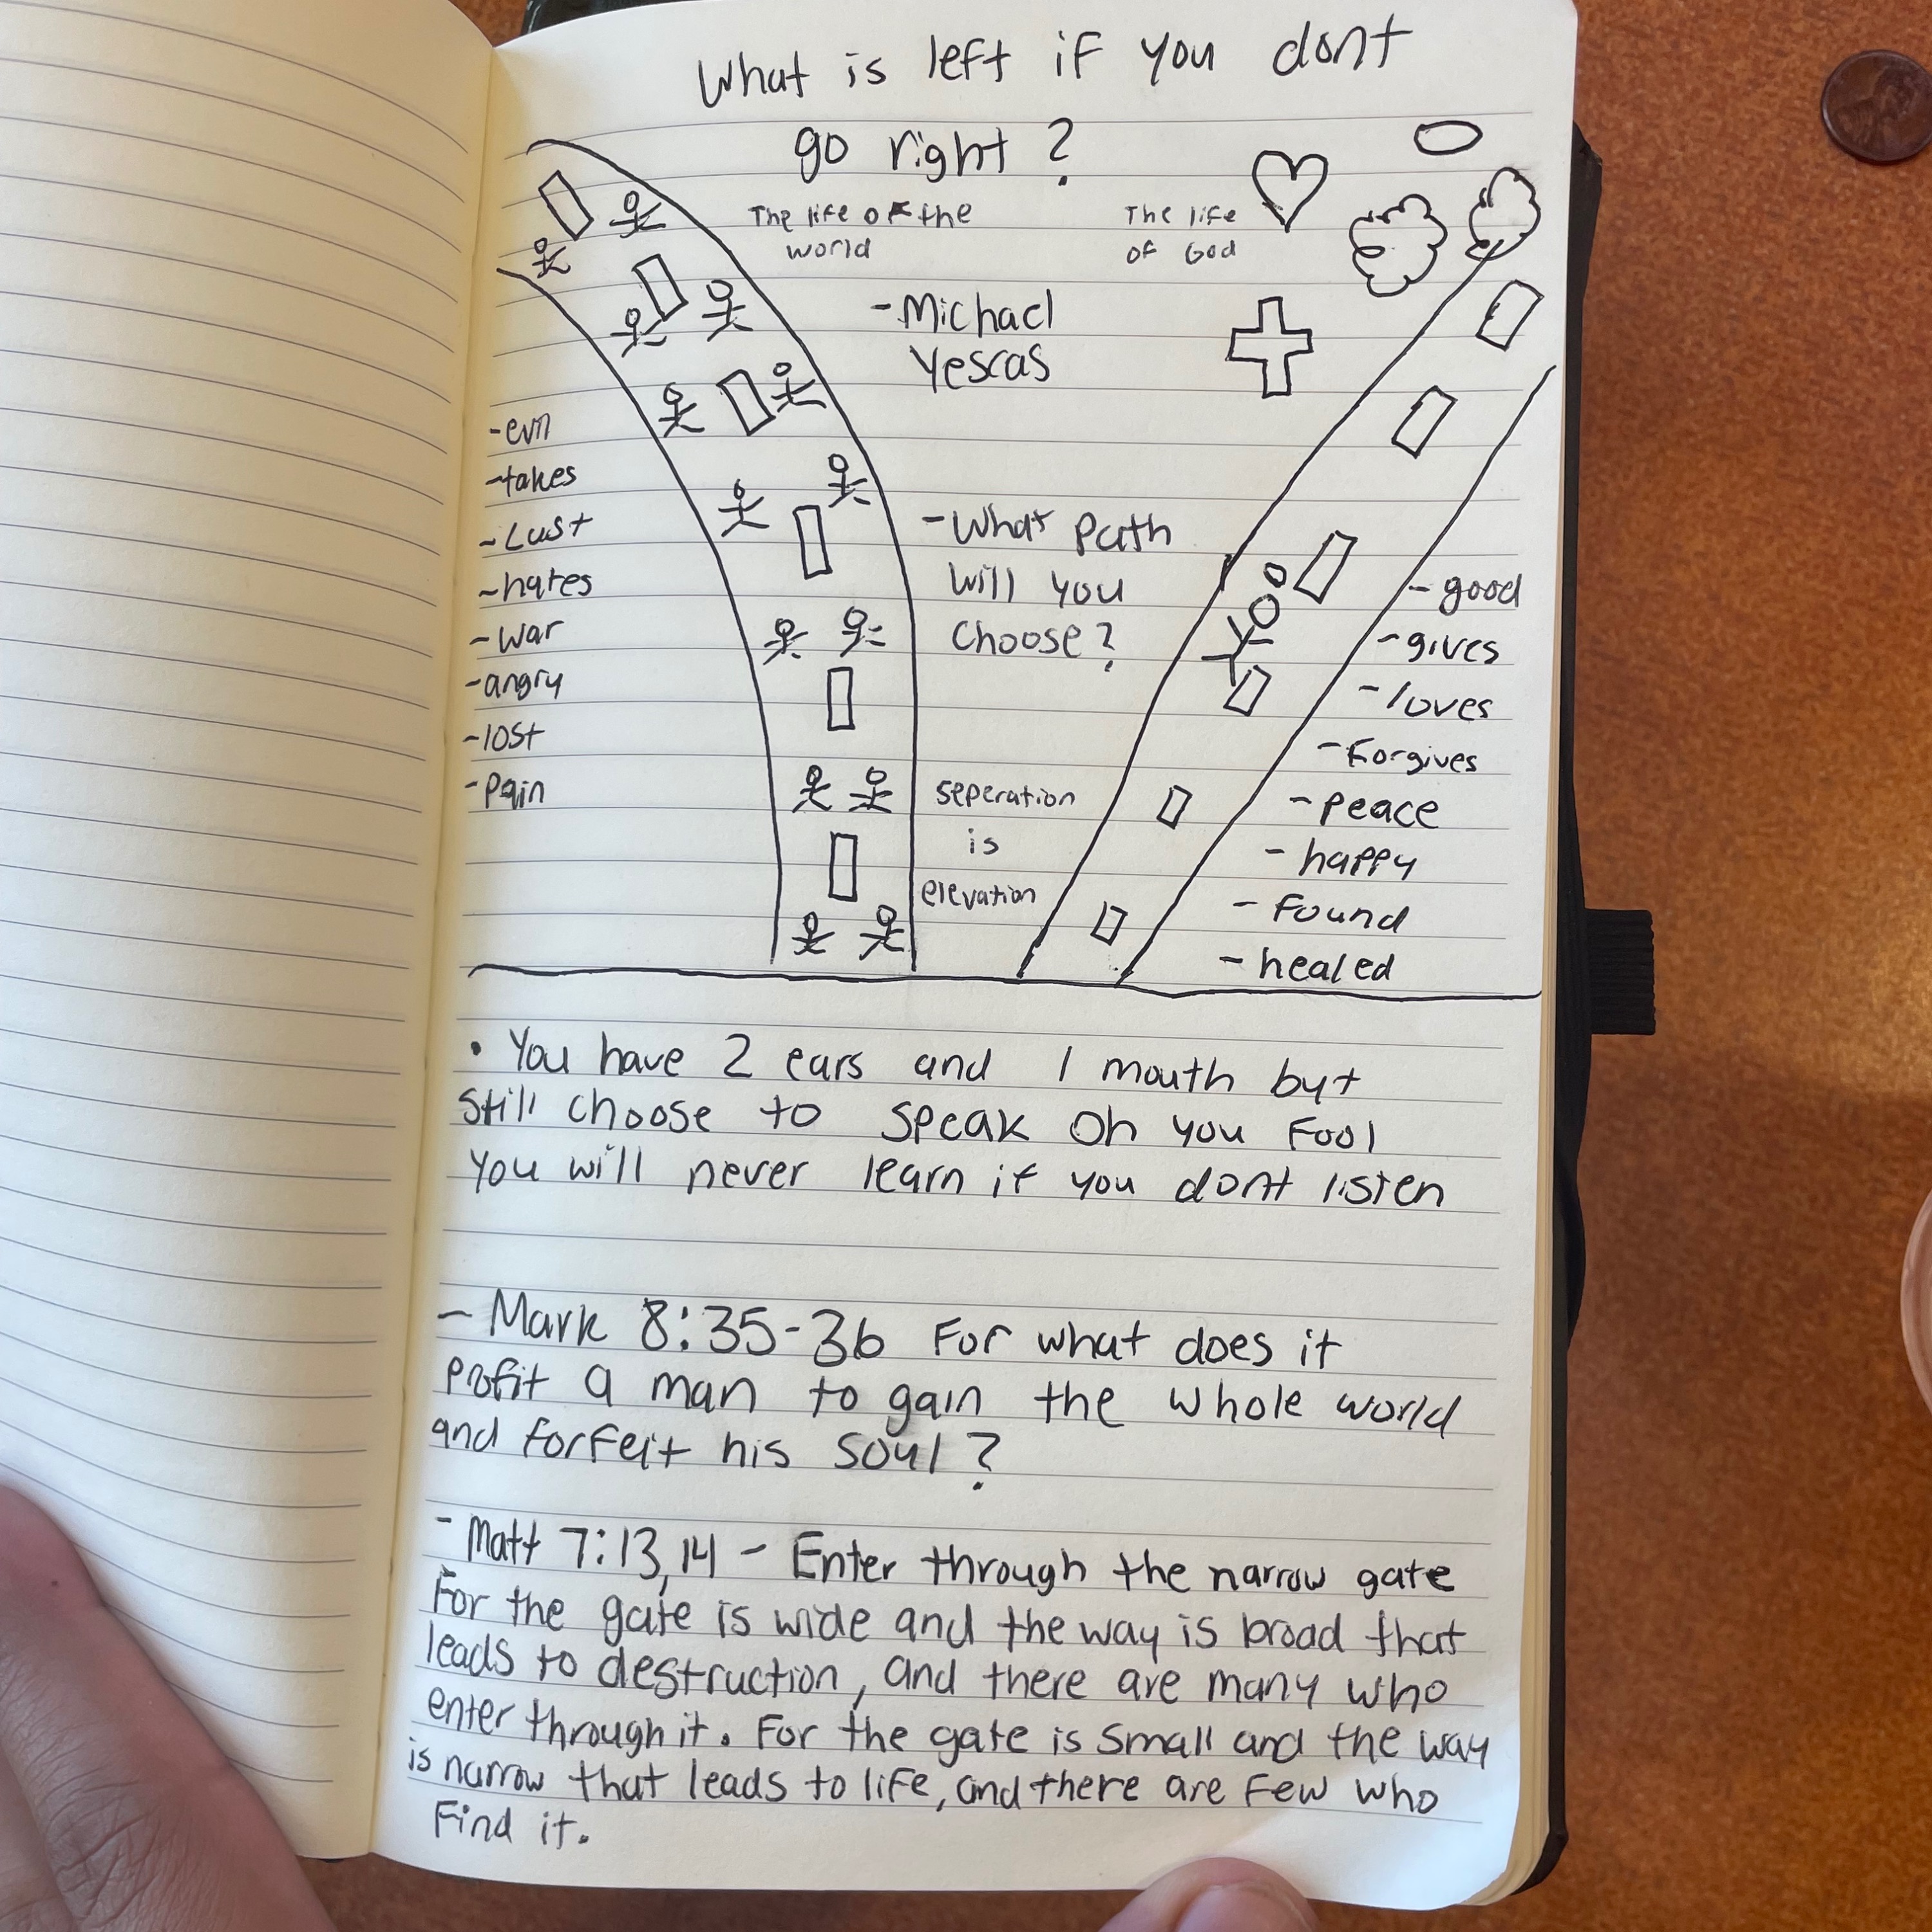 What is left if you dont
go right?
The life of the
world
The life
of God
-Michael
Yescas
-evil
-takes
-Lust
-hates
-war
-angry
-lost
-Pain
-What Path
will you
Choose?
seperation
is
elevation
-good
-gives
-loves
-Forgives
-Peace
-happy
-Found
-healed
• You have 2 ears and 1 mouth but
still choose to speak Oh you Fool
You will never learn if you dont listen
- Mark 8:35-36 For what does it
profit a man to gain the whole world
and forfeit his soul?
- Matt 7:13,14 - Enter through the narrow gate
For the gate is wide and the way is broad that
leads to destruction, and there are many who
enter through it. For the gate is small and the way
is narrow that leads to life, and there are few who
Find it.